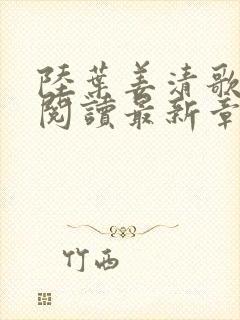 陸葉姜清歌
閱讀最新章
竹西